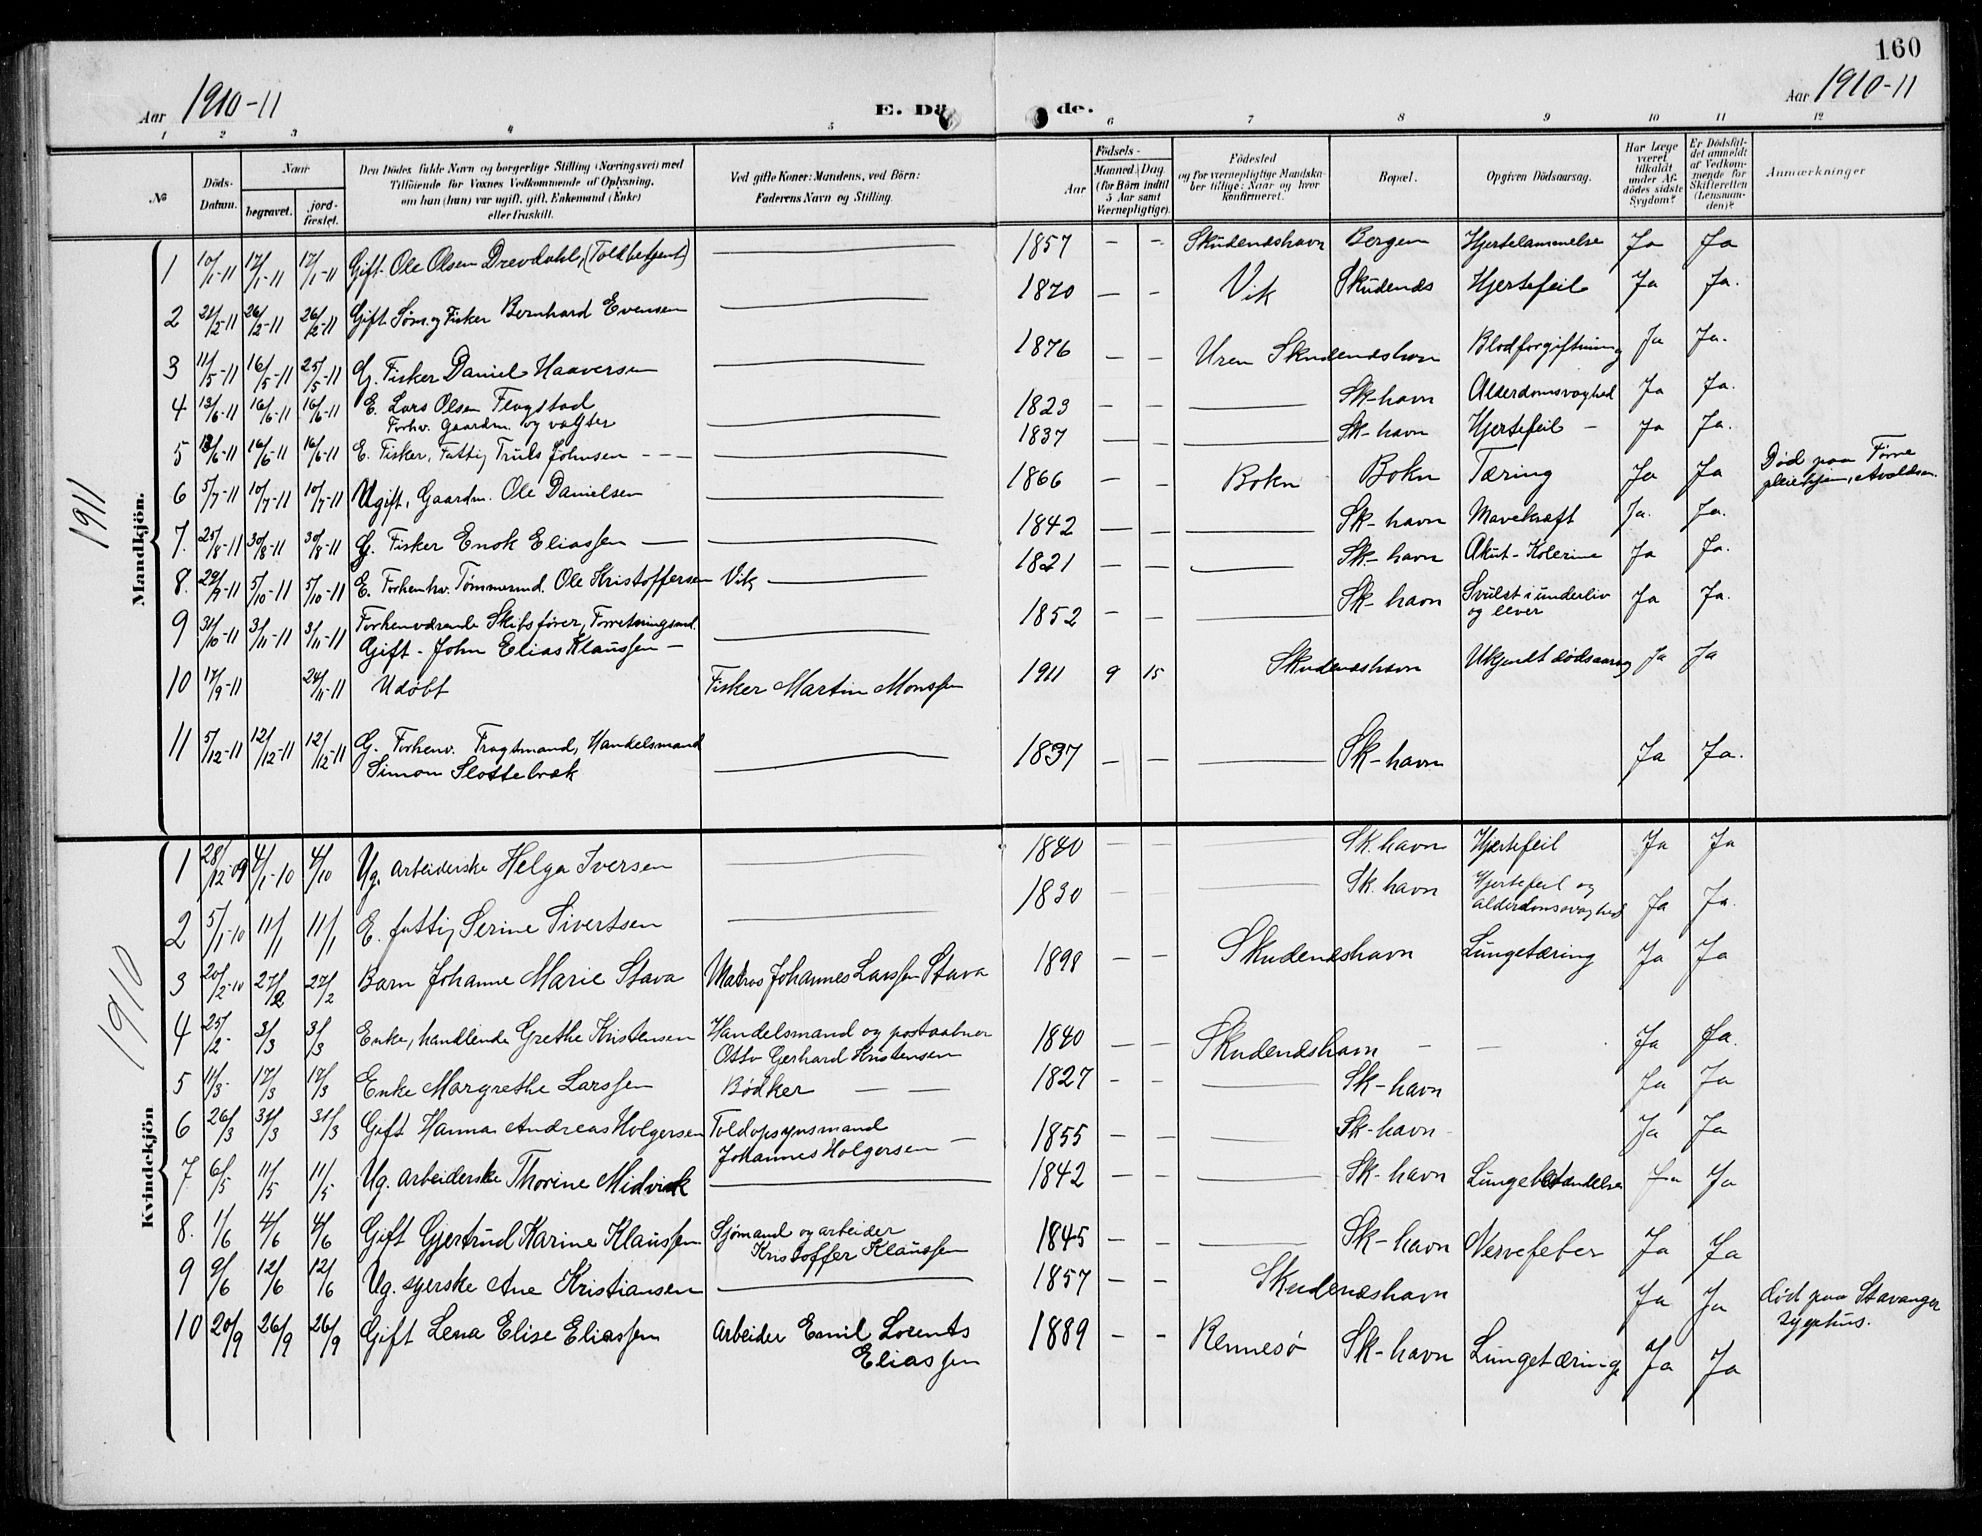 160
Aar 1910-11
E. Dö de.
Aar 1910-11
1 2 3 4 5 6 7 8 9 10 11 12
№
Döds-Datum.
Naar
begravet.
jord-fæstet.
Den Dödes fulde Navn og borgerlige Stilling (Næringsvei) med
Tilföiende for Voxnes Vedkommende af Oplysning,
om han (hun) var ugift, gift, Enkemand (Enke)
eller fraskilt.
Ved gifte Koner: Mandens, ved Börn:
Faderens Navn og Stilling.
Födsels-
Aar
Maaned. Dag.
(for Börn indtil
5 Aar samt
Værnepligtige).
Födested
og for værnepligtige Mandska-
ber tillige: Naar og hvor
konfirmeret.
Bopæl.
Opgiven Dödsaarsag.
Har Læge
været
tilkaldt
under Af-
dödes sidste
Sygdom?
Er Dödsfal-
det anmeldt
af Vedkom-
mende for
Skifteretten
(Lensman-
den)?
Anmærkninger
1911
Mandkjön.
1 10/1-11 17/1-11 17/1-11 Gift Ole Olsen Drevdahl, (Toldbetjent) — 1857 - - Skudeneshavn Bergen Hjertelammelse Ja Ja
2 21/2-11 26/2-11 26/2-11 Gift Søm. og Fisker Bernhard Evensen — 1870 - - Vik Skudenes Hjertefeil Ja Ja.
3 11/5-11 16/5-11 25/5-11 G. Fisker Daniel Haaversen — 1876 - - Uren Skudeneshavn Blodforgiftning Ja Ja.
4 13/6-11 16/6-11 16/6-11 E. Lars Olsen Flagstad
Forhv. Gaardm. og vægter — 1823 - - — Sk-havn Alderdomsvaghed Ja Ja.
5 13/6-11 16/6-11 16/6-11 E. Fisker, Fattig Truls Johnsen - - - 1837 - - — Sk-havn Hjertefeil - Ja Ja.
6 5/7-11 10/7-11 10/7-11 Ugift, Gaardm. Ole Danielsen — 1866 - - Bokn Bokn Tæring Ja Ja Død paa Førre
pleiehjem, Avaldsn.
7. 25/8-11 30/8-11 30/8-11 G. Fisker Enok Eliassen — 1842 - - — Sk-havn Mavekræft Ja. Ja.
8. 29/9-11 5/10-11 5/10-11 E. Forhenhv. Tømmermd. Ole Kristoffersen Vik — 1821 - - — Sk-havn Akut-Kolerine Ja Ja.
9 31/10-11 3/11-11 3/11-11 Forhenværende Skibsfører, Forretningsmd.
Gift - John Elias Klaussen — 1852 - - — Sk-havn Svulst i underliv
og lever Ja Ja.
10 17/9-11 24/11-11 Udøbt Fisker Martin Monssen 1911 9 15 Skudeneshavn Ukjendt dødsaarsag Ja Ja
11 5/12-11 12/12-11 12/12-11 G. Forhenv. Fragtmand, Handelsmand
Simon Slottebræk — 1837 - - Sk-havn Ja Ja.
1910
Kvindekjön
1 28/12 09 4/1-10 4/10 Ug. arbeiderske Helga Iversen — 1840 - - — Sk. havn Hjertefeil Ja Ja
2 5/1-10 11/1 11/1 E. fattig Serine Sivertsen — 1830 - - — Sk. havn Hjertefeil og
alderdomsvaghed Ja Ja.
3 20/2-10 27/2 27/2 Barn Johanne Marie Stava Matros Johannes Larssen Stava 1898 - - Skudeneshavn Lungetæring Ja Ja
4 25/2- 3/3 3/3 Enke, handlende Grethe Kristensen Handelsmand og postaabner
Otto Gerhard Kristensen 1840 - - Skudeneshavn - - Ja Ja.
5 11/3- 17/3 17/3 Enke Margrethe Larssen Bødker — — 1827 - - — Sk-havn Ja Ja
6 26/3 31/3 31/3 Gift Hanna Andreas Holgersen Toldopsynsmand
Johannes Holgersen — 1855 - - — Sk-havn - Ja Ja
7. 6/5 11/5 11/5 Ug. arbeiderske Thorine Midvik — 1842 - - — Sk-havn Lungebetændelse Ja Ja
8. 1/6 4/6 4/6 Gift Gjertrud Karine Klaussen Sjømand og arbeider
Kristoffer Klaussen 1845 - - — Sk-havn Nervefeber Ja Ja
9 9/6 12/6 12/6 Ug. syerske Ane Kristiansen — 1857 - - Skudeneshavn Ja Ja død paa Stavanger
sygehus.
10 20/9 26/9 26/9 Gift Lena Elise Eliassen Arbeider Emil Lorents
Eliassen 1889 - - Rennesø Sk-havn Lungetæring Ja Ja